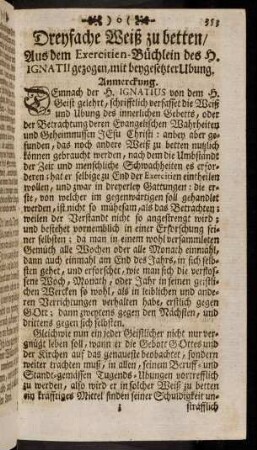 )o( 353
Dreyfache Weiß zu betten/
Aus dem Exercitien-Büchlein des H.
IGNATII gezogen, mit beygesetzter Ubung.
Anmerckung.
DEmnach der H. IGNATIUS von dem H.
Geist gelehrt, schrifftlich verfasset die Weiß
und Ubung des innerlichen Gebetts, oder
der Betrachtung deren Evangelischen Wahrheiten
und Geheimnussen JEsu Christi: anbey aber ge-
funden, das noch andere Weiß zu betten nutzlich
können gebraucht werden, nach dem die Umbständt
der Zeit und menschliche Schwachheiten es erfor-
deren: hat er selbige zu End der Exercitien eintheilen
wollen, und zwar in dreyerley Gattungen: die er-
ste, von welcher im gegenwärtigen soll gehandelt
werden, ist nicht so mühesam, als das Betrachten:
weilen der Verstandt nicht so angestrengt wird;
und bestehet vornemblich in einer Erforschung seiner
selbsten; da man in einem wohl versammleten
Gemüth alle Wochen oder alle Monath einmahl,
dann auch einmahl am End des Jahrs, in sich selb-
sten gehet, und erforschet, wie man sich die verflos-
sene Woch, Monath, oder Jahr in seinen geistli-
chen Wercken so wohl, als in leiblichen und anderen
Verrichtungen verhalten habe, erstlich gegen
GOtt; dann zweytens gegen den Nächsten, und
drittens gegen sich selbsten.
Gleichwie nun ein jeder Geistlicher nicht nur ver-
gnügt leben soll, wann er die Gebott GOttes und
der Kirchen auf das genaueste beobachtet, sondern
weiter trachten muß, in allen, seinem Beruff- und
Standt-gemässen Tugends-Ubungen vortrefflich
zu werden, also wird er in solcher Weiß zu betten
ein kräfftiges Mittel finden seiner Schuldigkeit un-
i sträfflich